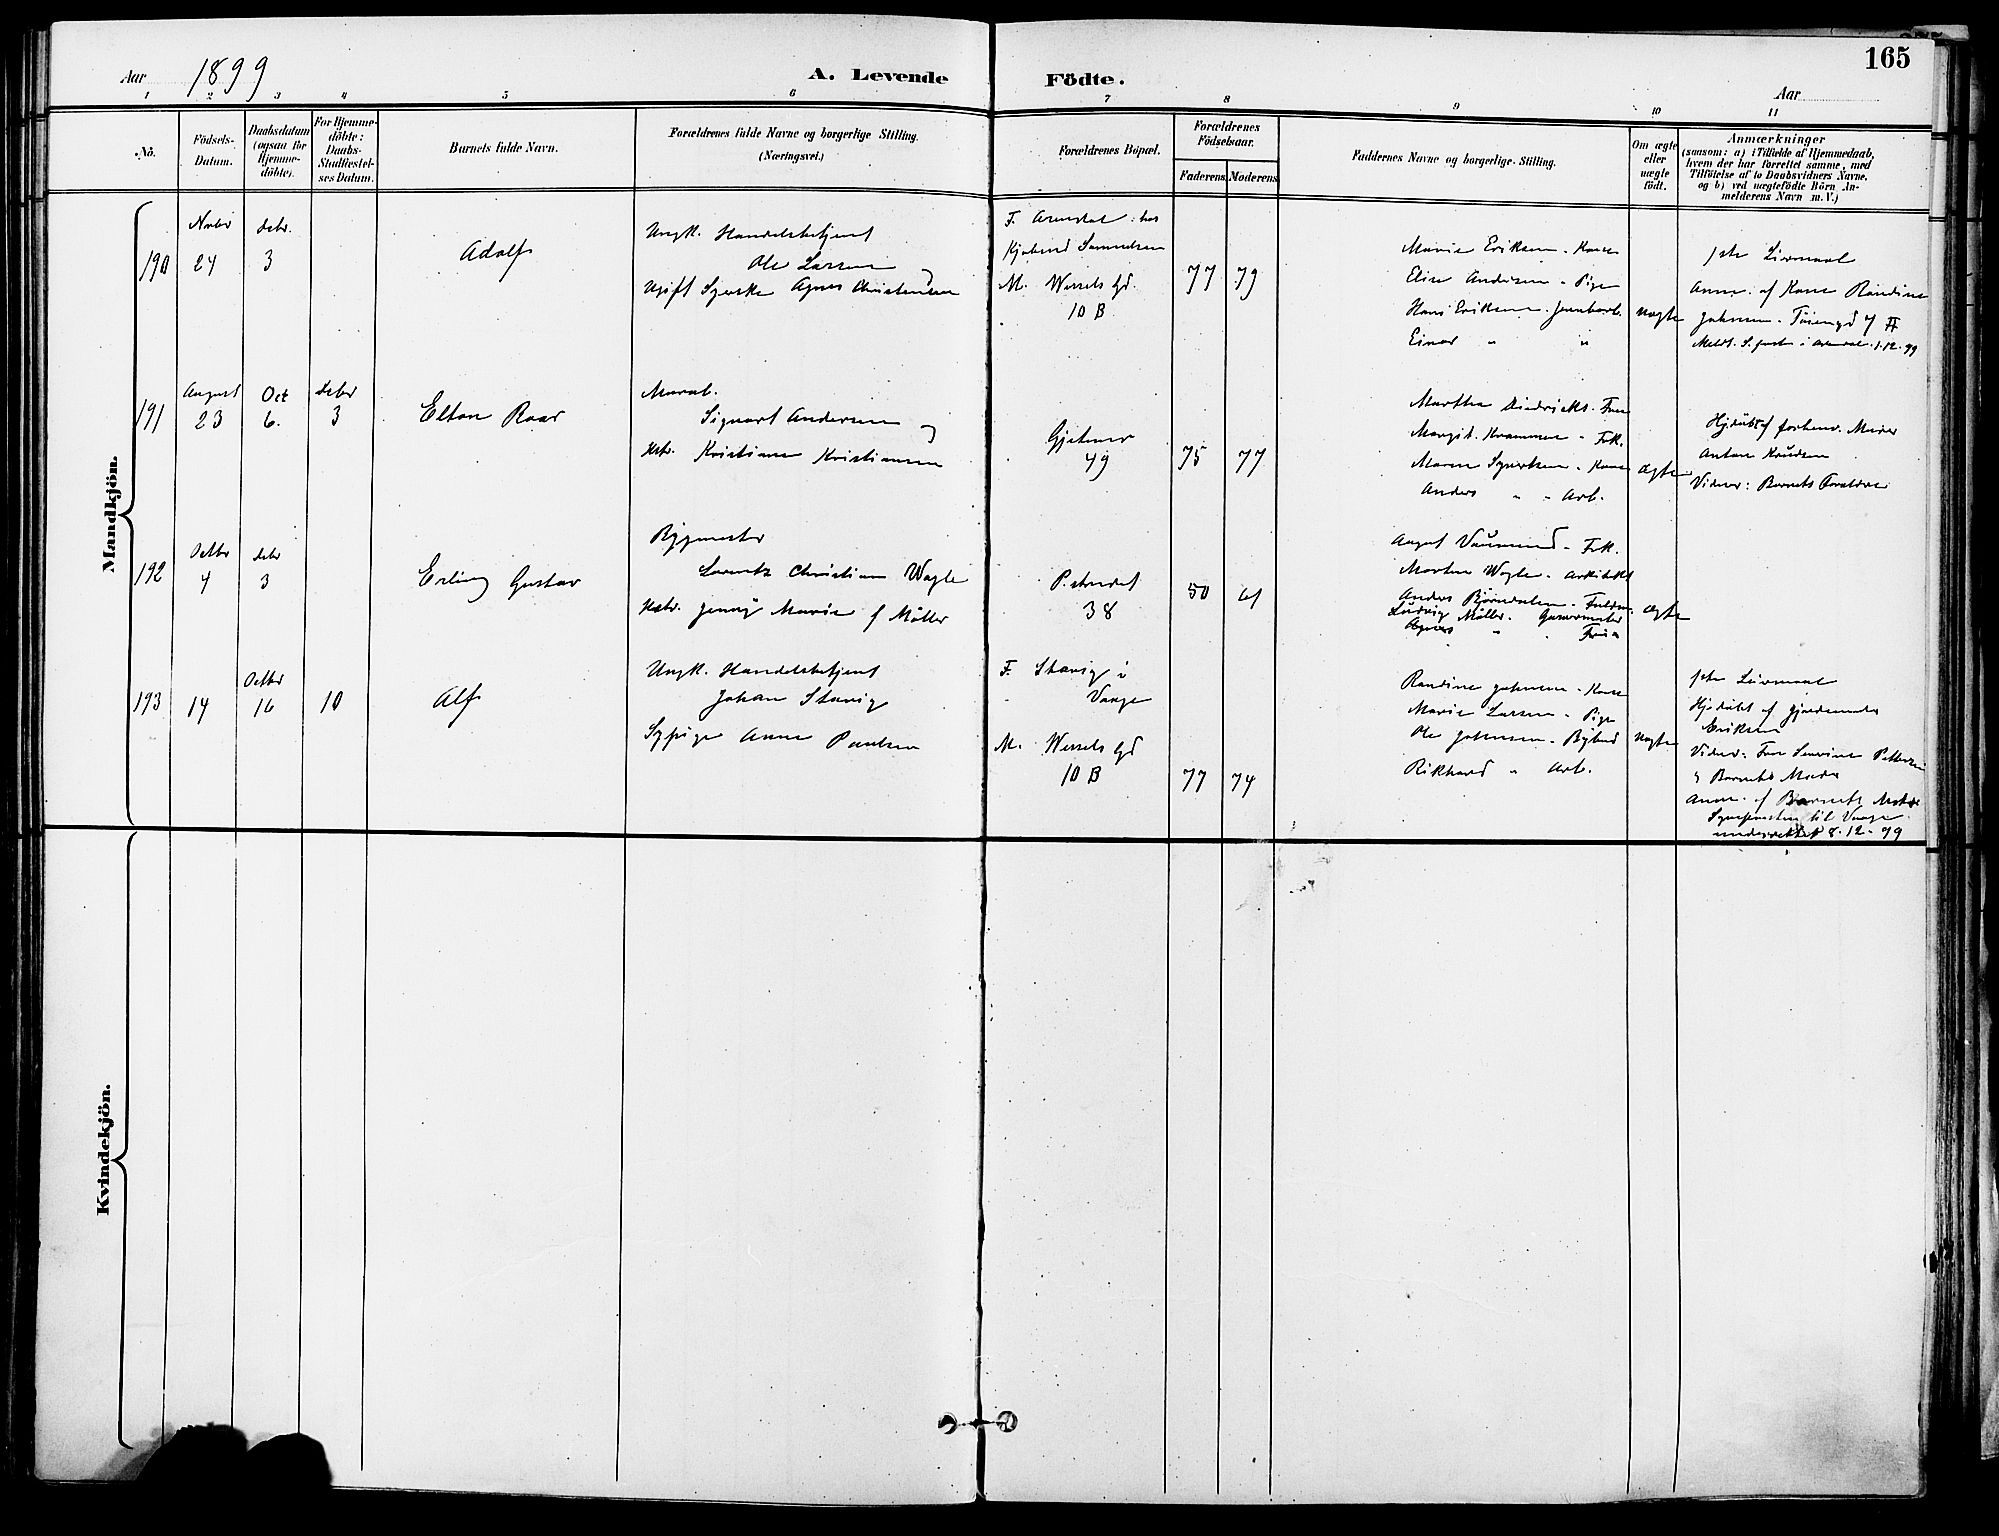 165
Aar 1899
A. Levende Födte.
Aar
1 2 3 4 5 6 7 8 9 10 11
No.
Födsels-
Datum.
Daabsdatum
(ogsaa for
Hjemme-
döbte).
For Hjemme-
döbte:
Daabs-
Stadfæstel-
ses Datum.
Barnets fulde Navn.
Forældrenes fulde Navne og borgerlige Stilling.
(Næringsvei.)
Forældrenes Bopæl.
Forældrenes
Födselsaar.
Faderens. Moderens.
Faddernes Navne og borgerlige Stilling.
Om ægte
eller
uægte
födt.
Anmærkninger
(saasom: a) i Tilfælde af Hjemmedaab,
hvem der har forrettet samme, med
Tilföielse af to Daabsvidners Navne,
og b) ved uægtefödte Börn An-
melderens Navn m. V.)
Mandkjön.
190
Novbr
24
Debr.
3
Adolf
Ungk. Handelsbetjent
Ole Larsen og
Ugift Syerske Agnes Christensen
F. Arendal hos
Kjöbmd Samuelsen
M. Wessels Gd.
10 B
77 79
Marie Eriksen - Kone
Elise Andersen - Pige
Hans Eriksen - Jernbarb.
Einar " "
uægte
1ste Leiermaal
Anm. af Kone Randine
Johnsen - Töiengd 9 II
Meldt S. prsten i Arendal 1-12-99
191
August
23
Oct
6.
Debr
3
Elton Roar
Sigvart Andersen og
Hstr. Kristiane Kristiansen
49
75 77
Martha Diedricks. Frue
Margit. - Frk.
Maren Syvertsen - Kone
Anders " - Arb.
ægte
Hjdöbt af forhenv. Murer
Anton Knudsen
Vidner: Barnets Forældre
192
Octbr
4
Debr
3
Erling Gustav
Bygmester
Lorentz Christian Wagle
Hstr. Jenny Marie f Möller
P. stredet
38
50 61
August - Frk.
Morten Wagle - Arkitekt
Anders Björndalen - Fuldm.
Ludvig Möller -
Agnes " - Frue
ægte
193
14
Octbr
16
10
Alf
Ungk. Handelsbetjent
Johan Stavig
Sypige Anne Paulsen
F. Stavig i
Vaage
M. Wessels Gd
10 B
77 74
Randine Johnsen - Kone
Marie Larsen - Pige
Ole Johnsen - Bybud
Rikhard " Arb.
uægte
1ste Leiermaal
Hjdöbt af Gjordemoder
Eriksen
Vidner: Frue Severine Pettersen
& Barnets Moder
Anm. af Barnets Moder
Sognepresten til Vaage
underrettet 8-12-99
Kvindekjön.